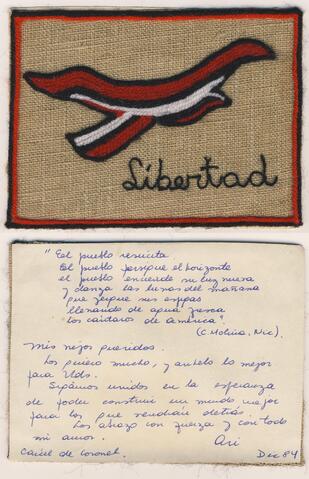 Libertad
"El pueblo resucita
El pueblo persigue el horizonte
el pueblo enciende su luz nueva
y danza las lunas del mañana
que sus
llenando de agua fresca
los cántaros de América"
(C. Molina, Nic).
Mis hijos queridos.
Los quiero mucho, y anhelo lo mejor
para Uds.
Sigamos unidos en la esperanza
de poder construir un mundo mejor
para los que vendrán detrás.
Los abrazo con fuerza y con todo
mi amor.
Ari
Cárcel de Coronel. Dic 84